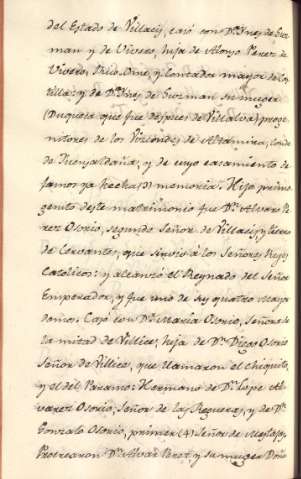 del Estado de Villacis, casó con Dª Ynes de Guz-
man y de Vivero, hija de Alonso Perez de
Vivero, y Contador mayor de
Castilla; y de Dª Ynes de Guzman su muger
(Duquesa que fue despues de Villalva) proge-
nitores de los Vizcondes de Altamira, Conde
de Fuensaldaña, y de cuyo casamiento de-
jamos ya hecha (3) memoria. Hijo primo-
genito deste matrimonio fue Dⁿ Alvaro Pe-
rez Osorio, segundo Señor de Villacis, y tierra
de Cervantes, que sirvió a los Señores Reyes
Catolicos: y alcanzó el Reynado del Señor
Emperador, y fue uno de sus quatro Mayor-
domos. Casó con Dª Maria Osorio, Señora de
la mitad de Villice, hija de Dⁿ Diego Osorio
Señor de Villice, que llamaron el chiquito,
y el del Paramo: Hermano de Dⁿ Lope Al-
varez Osorio, Señor de las Regueras, y de Dⁿ
Gonzalo Osorio, primer (4) Señor de
Procrearon Dⁿ Alvar Perez y su muger Doña